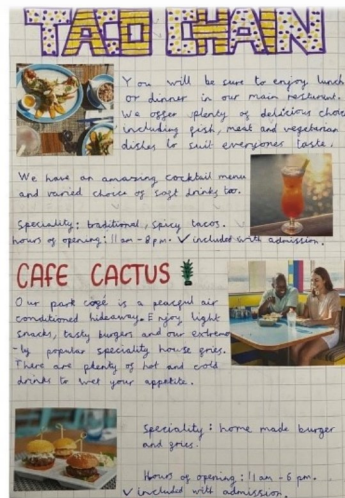 TACO CHAIN
You will be sure to enjoy lunch
or dinner in our main resturent.
We offer plenty of delicious
including fish, meat and vegetarian
dishes to suit everyones taste.
We have an amazing cocktail menu
and varied choice of soft drinks too.
Speciality: traditional, spicy tacos.
hours of opening: 11am - 8pm. ✓ included with admission.
CAFE CACTUS
Our park cafe is a peaceful air
conditioned hideaway. Enjoy light
snacks, tasty burgers and our extreme
-ly popular speciality house fries.
There are plenty of hot and cold
drinks to wet your appetite.
Speciality: home made burger
and fries.
Hours of opening: 11am - 6 pm.
✓ included with admission.